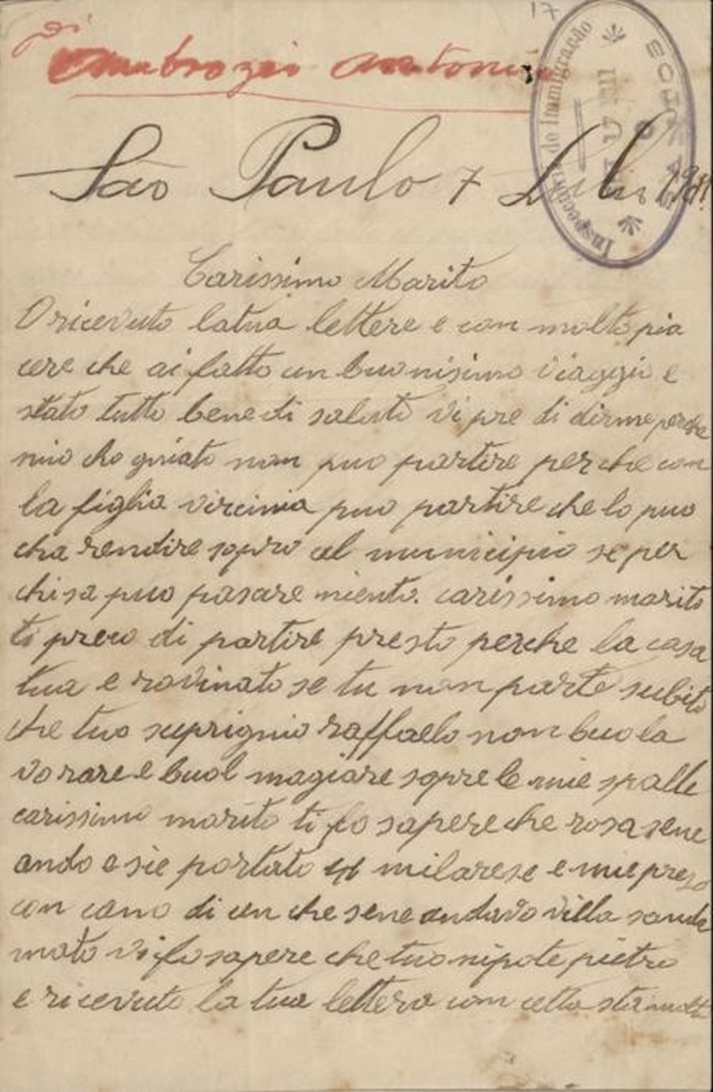 17
di
Ambrozei Antonio
Inspectoria de Immigração
São Paulo 7
Carissimo Marito
O ricevuto latua lettere e con molto pia
cere che ai fatto un buonisimo viaggio e
stato tutto bene ti saluto vi pre di dirme perche
mio cho gniato non puo partire perche con
la figlia vircinia puo partire che lo puo
cha rendire sopro al municipio se per
chisa puo pasare niento. carissimo marito
ti preco di partire presto perche la casa
tua e rovinato se tu non parte subito
che tuo suprignio raffaelo non buo la
vorare e buol magiare sopre le mie spalle
carissimo marito ti fo sapere che rosa sene
ando e sie portato milarese e mie preso
con cano di un che sene andavo villa
mato vi fo sapere che tuo nipote pietro
e ricevuto la tua lettera con cetto sta molto